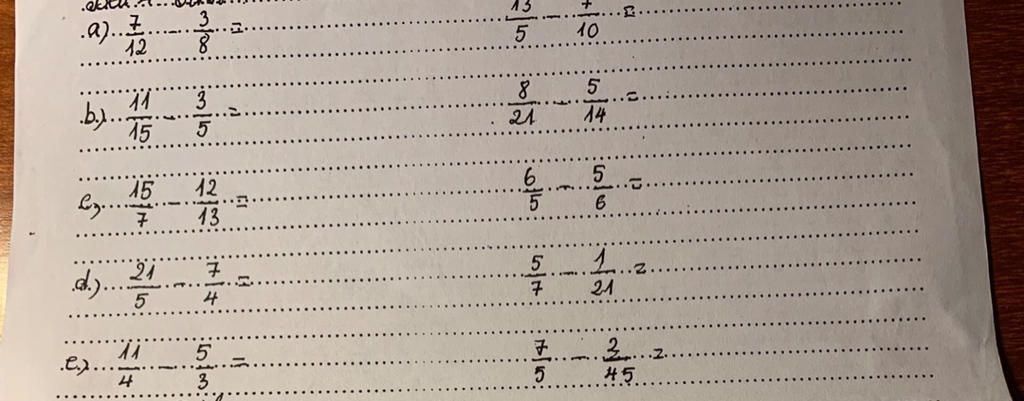 a) 7/12 - 3/8 = 13/5 - 7/10 =
b.) 11/15 - 3/5 = 8/21 - 5/14 =
c, 15/7 - 12/13 = 6/5 - 5/6 =
d.) 21/5 - 7/4 = 5/7 - 1/21 =
e.) 11/4 - 5/3 = 7/5 - 2/45 =